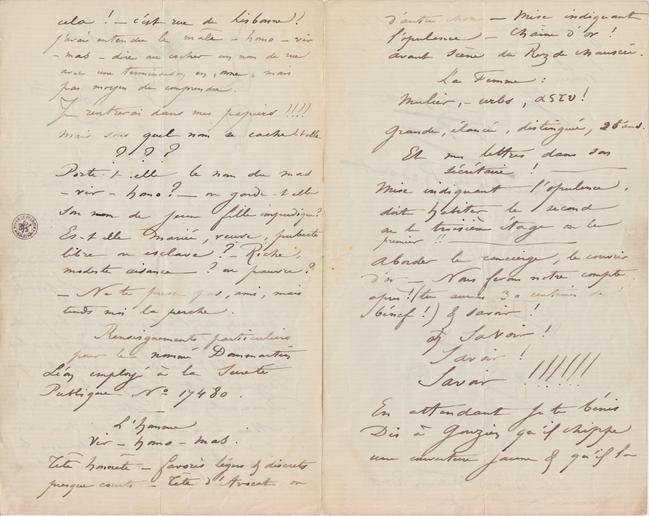 cela ! – c'est rue de Lisbonne !
j'avais entendu le mâle – homo – vir
– mas – dire au cocher un nom de rue
avec une terminaison en, onne, mais
pas moyen de comprendre.
Je rentrerai dans mes papiers !!!!
Mais sous quel nom se cache-t-elle
? ? ?
Porte-t-elle le nom du mas
– vir – homo ? – ou garde-t-elle
son nom de jeune fille impudique ?
Es-t-elle mariée, veuve,
libre ou esclave ? – Riche,
modeste aisance ? ou pauvre ?
– Ne te presse pas, ami, mais
tends moi la perche.
Renseignements particuliers
pour le nommé Dommartin
Léon employé à la Sureté
Publique No 17480.
L'homme
Vir – homo – mas.
Tête honnête – favoris légers & discrets
presque courts – Tête d'Avocat ou
d'autre chose – Mise indiquant
l'opulence – Chaîne d'or !
avant scène du Rez de chaussée.
La Femme :
Mulier, – urbs, αστυ !
Grande, élancée, distinguée, 26 ans.
Et mes lettres dans son
sécrétaire !
Mise indiquant l'opulence.
doit habiter le second
ou le troisième étage ou le
premier !!
Aborder le concierge, le couvrir
d'or – Nous ferons notre compte
après ! (tu auras 30 centimes de
bénef !) & savoir !
& Savoir !
Savoir !
Savoir !!!!!!!
En attendant je te bénis
Dis à Gouzien qu'il chippe
une couverture jaune & qu'il la